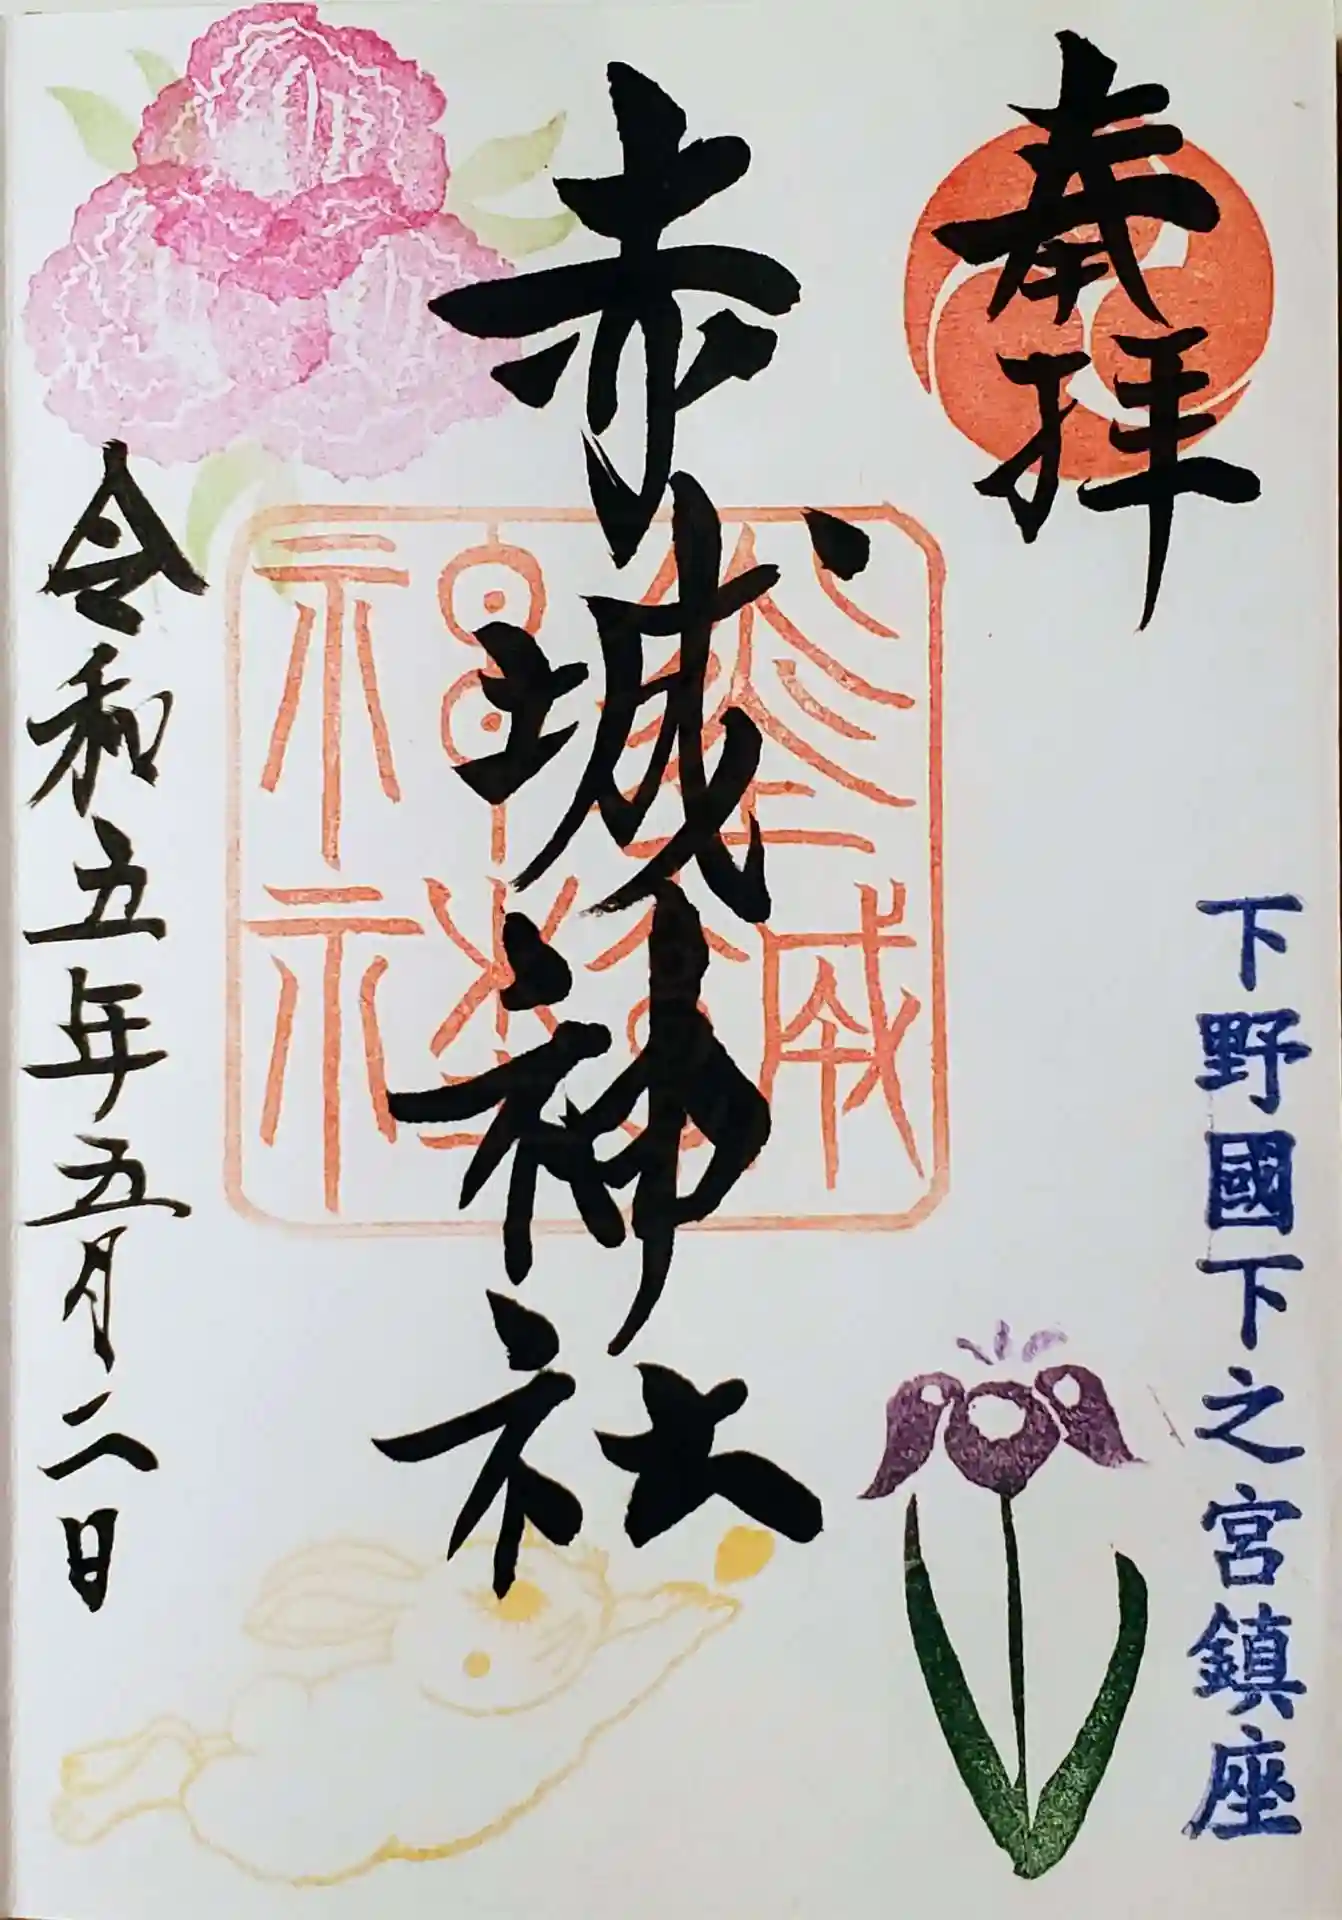 奉拝
下野國下之宮鎮座
赤城神社
令和五年五月二日